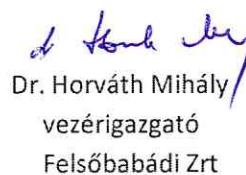 Dr. Horváth Mihály
vezérigazgató
Felsőbabádi Zrt